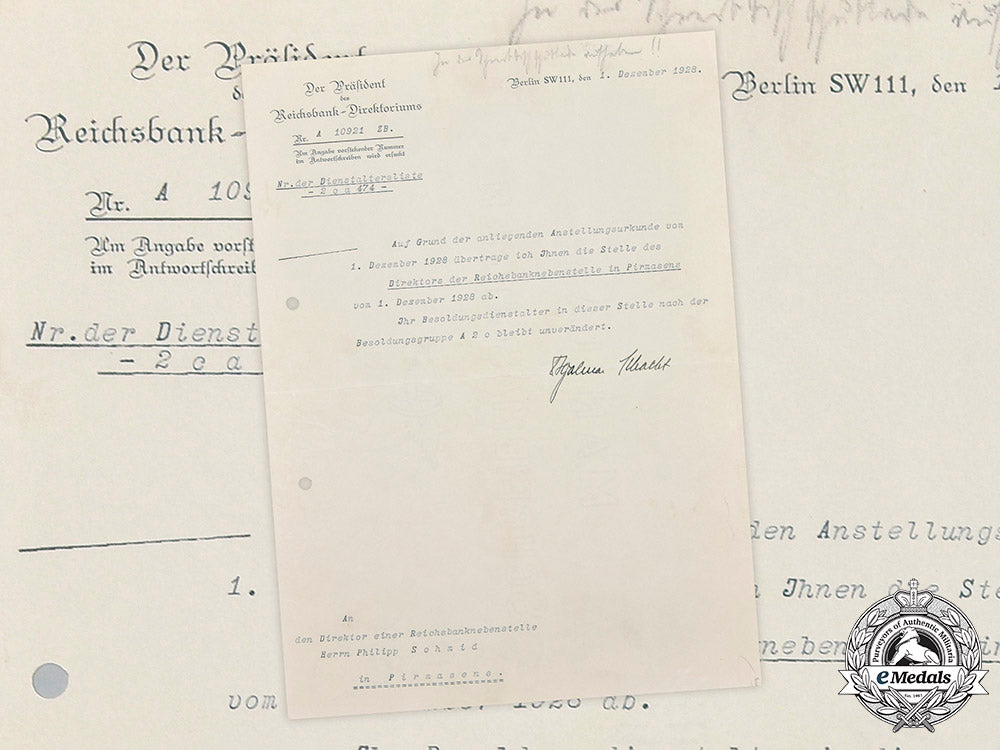 Der Präsident
des
Reichsbank-Direktoriums
Nr. A 10921 ZB.
Um Angabe vorstehender Nummer
im Antwortschreiben wird ersucht
Nr.der Dienstaltersliste
- 2 c a 474 -
In der aufheben !!
Berlin SW111, den 1. Dezember 1928.
Auf Grund der anliegenden Anstellungsurkunde vom
1. Dezember 1928 übertrage ich Ihnen die Stelle des
Direktors der Reichsbanknebenstelle in Pirmasens
vom 1. Dezember 1928 ab.
Ihr Besoldungsdienstalter in dieser Stelle nach der
Besoldungsgruppe A 2 c bleibt unverändert.
Hjalmar Schacht
An
den Direktor einer Reichsbanknebenstelle
Herrn Philipp Schmid
in Pirmasens.
Der Präsident
Reichsbank-
Nr. A 109
Um Angabe vorst
im Antwortschreib
Nr.der Dienst
- 2 c a
Berlin SW111, den
den Anstellungs
1.
Ihnen die Ste
neben
vom
ab.
Purveyors of Authentic Militaria
eMedals